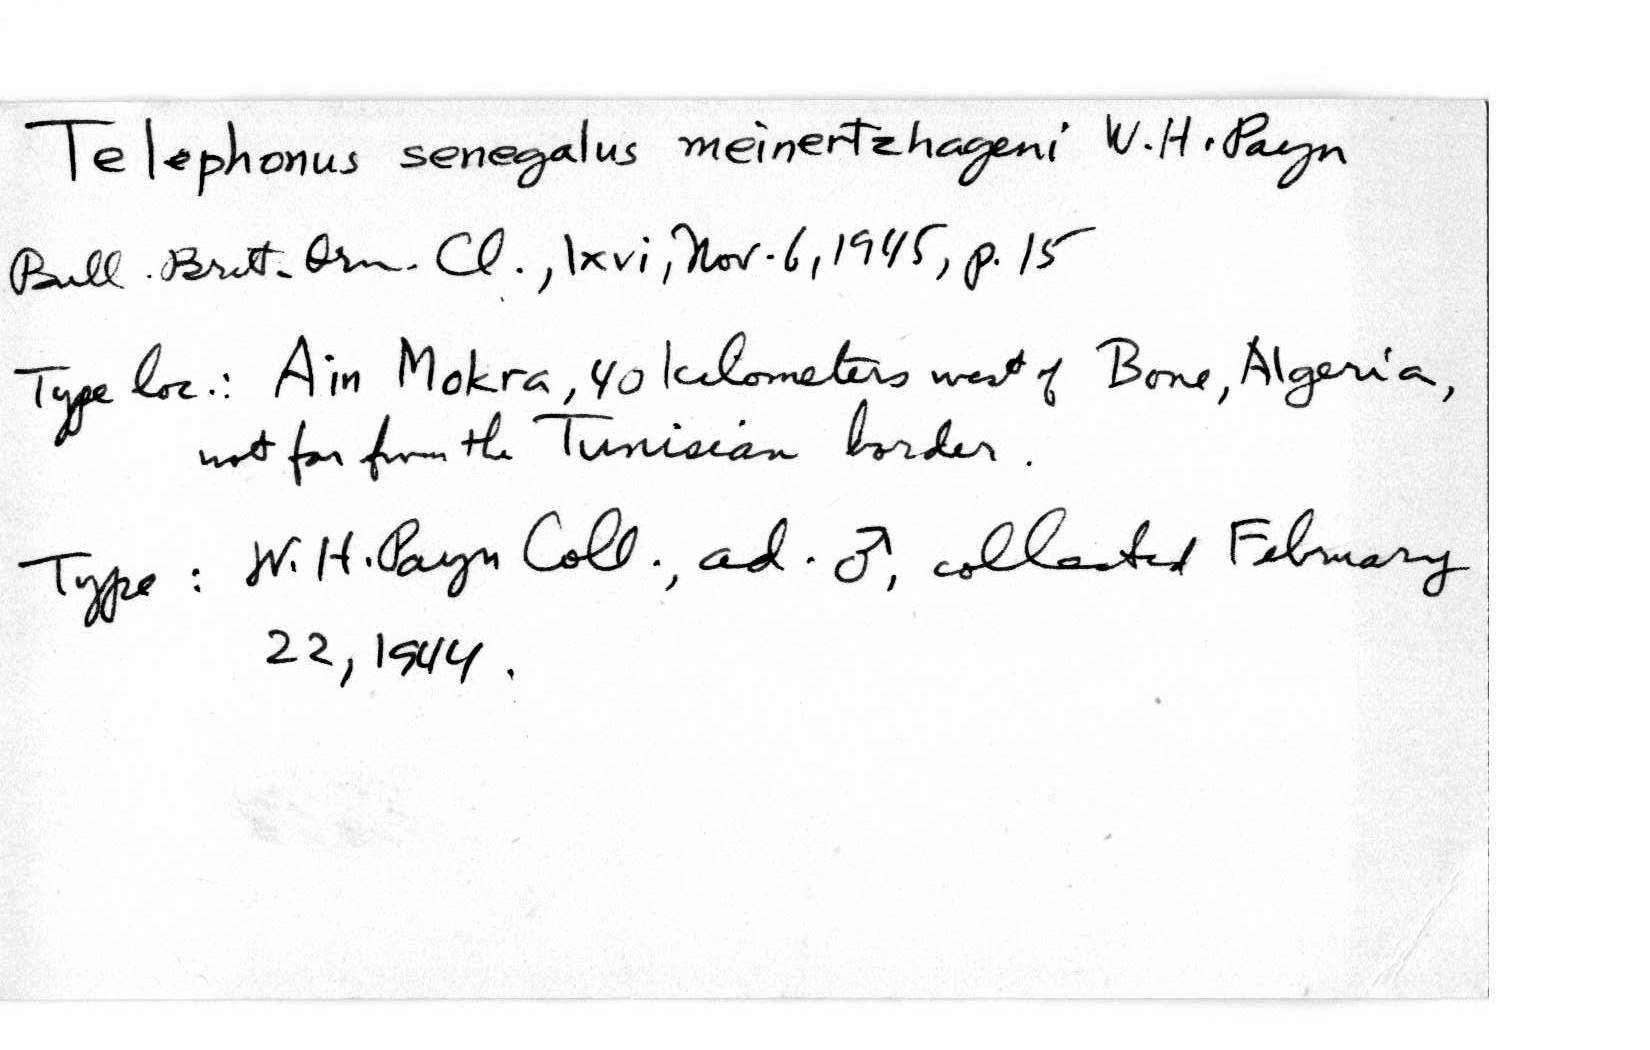 Telephonus senegalus meinertzhageni W.H. Payn
Bull. Brit. Orn. Cl., lxvi, Nov. 6, 1945, p. 15
Type loc.: Ain Mokra, 40 kilometers west of Bone, Algeria,
not far from the Tunisian border.
Type: W.H. Payn Coll., ad. ♂, collected February
22, 1944.